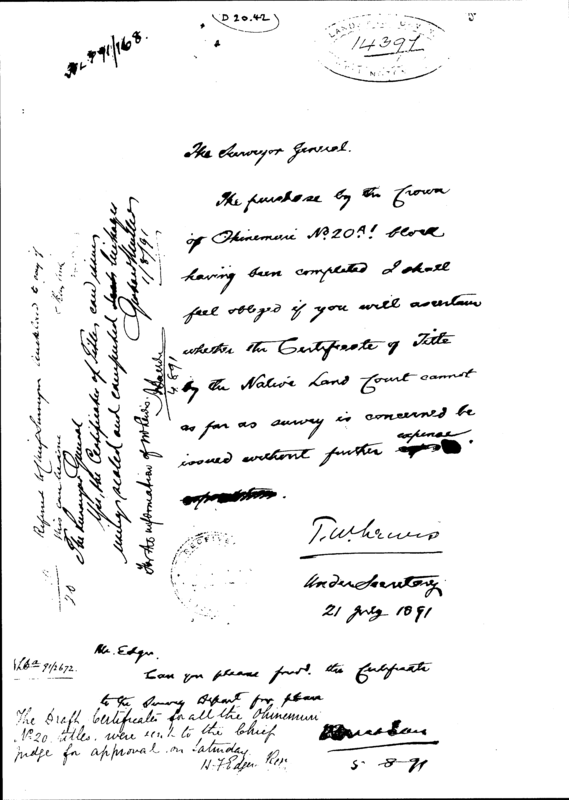 D 20.42
N.L.P 91/168.
14397
The Surveyor General.
The purchase by the Crown
of Ohinemuri No. 20A1 block
having been completed I shall
feel obliged if you will ascertain
whether the Certificate of Title
by the Native Land Court cannot
as far as survey is concerned be
issued without further expense.
T.W. Lewis
Under Secretary
21 July 1891
Referred to Chief Surveyor Auckland to say if
this can be done
The Surveyor General
Yes, the Certificates of Titles can issue
being sealed and compended linkages
1/8/91
For the information of Mr Lewis.
4.8.91
Mr. Edger.
Can you please forwd. the Certificate
to the Survey Depart for plan
5-8-91
91/2672.
The Draft Certificates for all the Ohinemuri
No 20 titles were sent to the Chief
Judge for approval on Saturday
H.F. Edger Rer